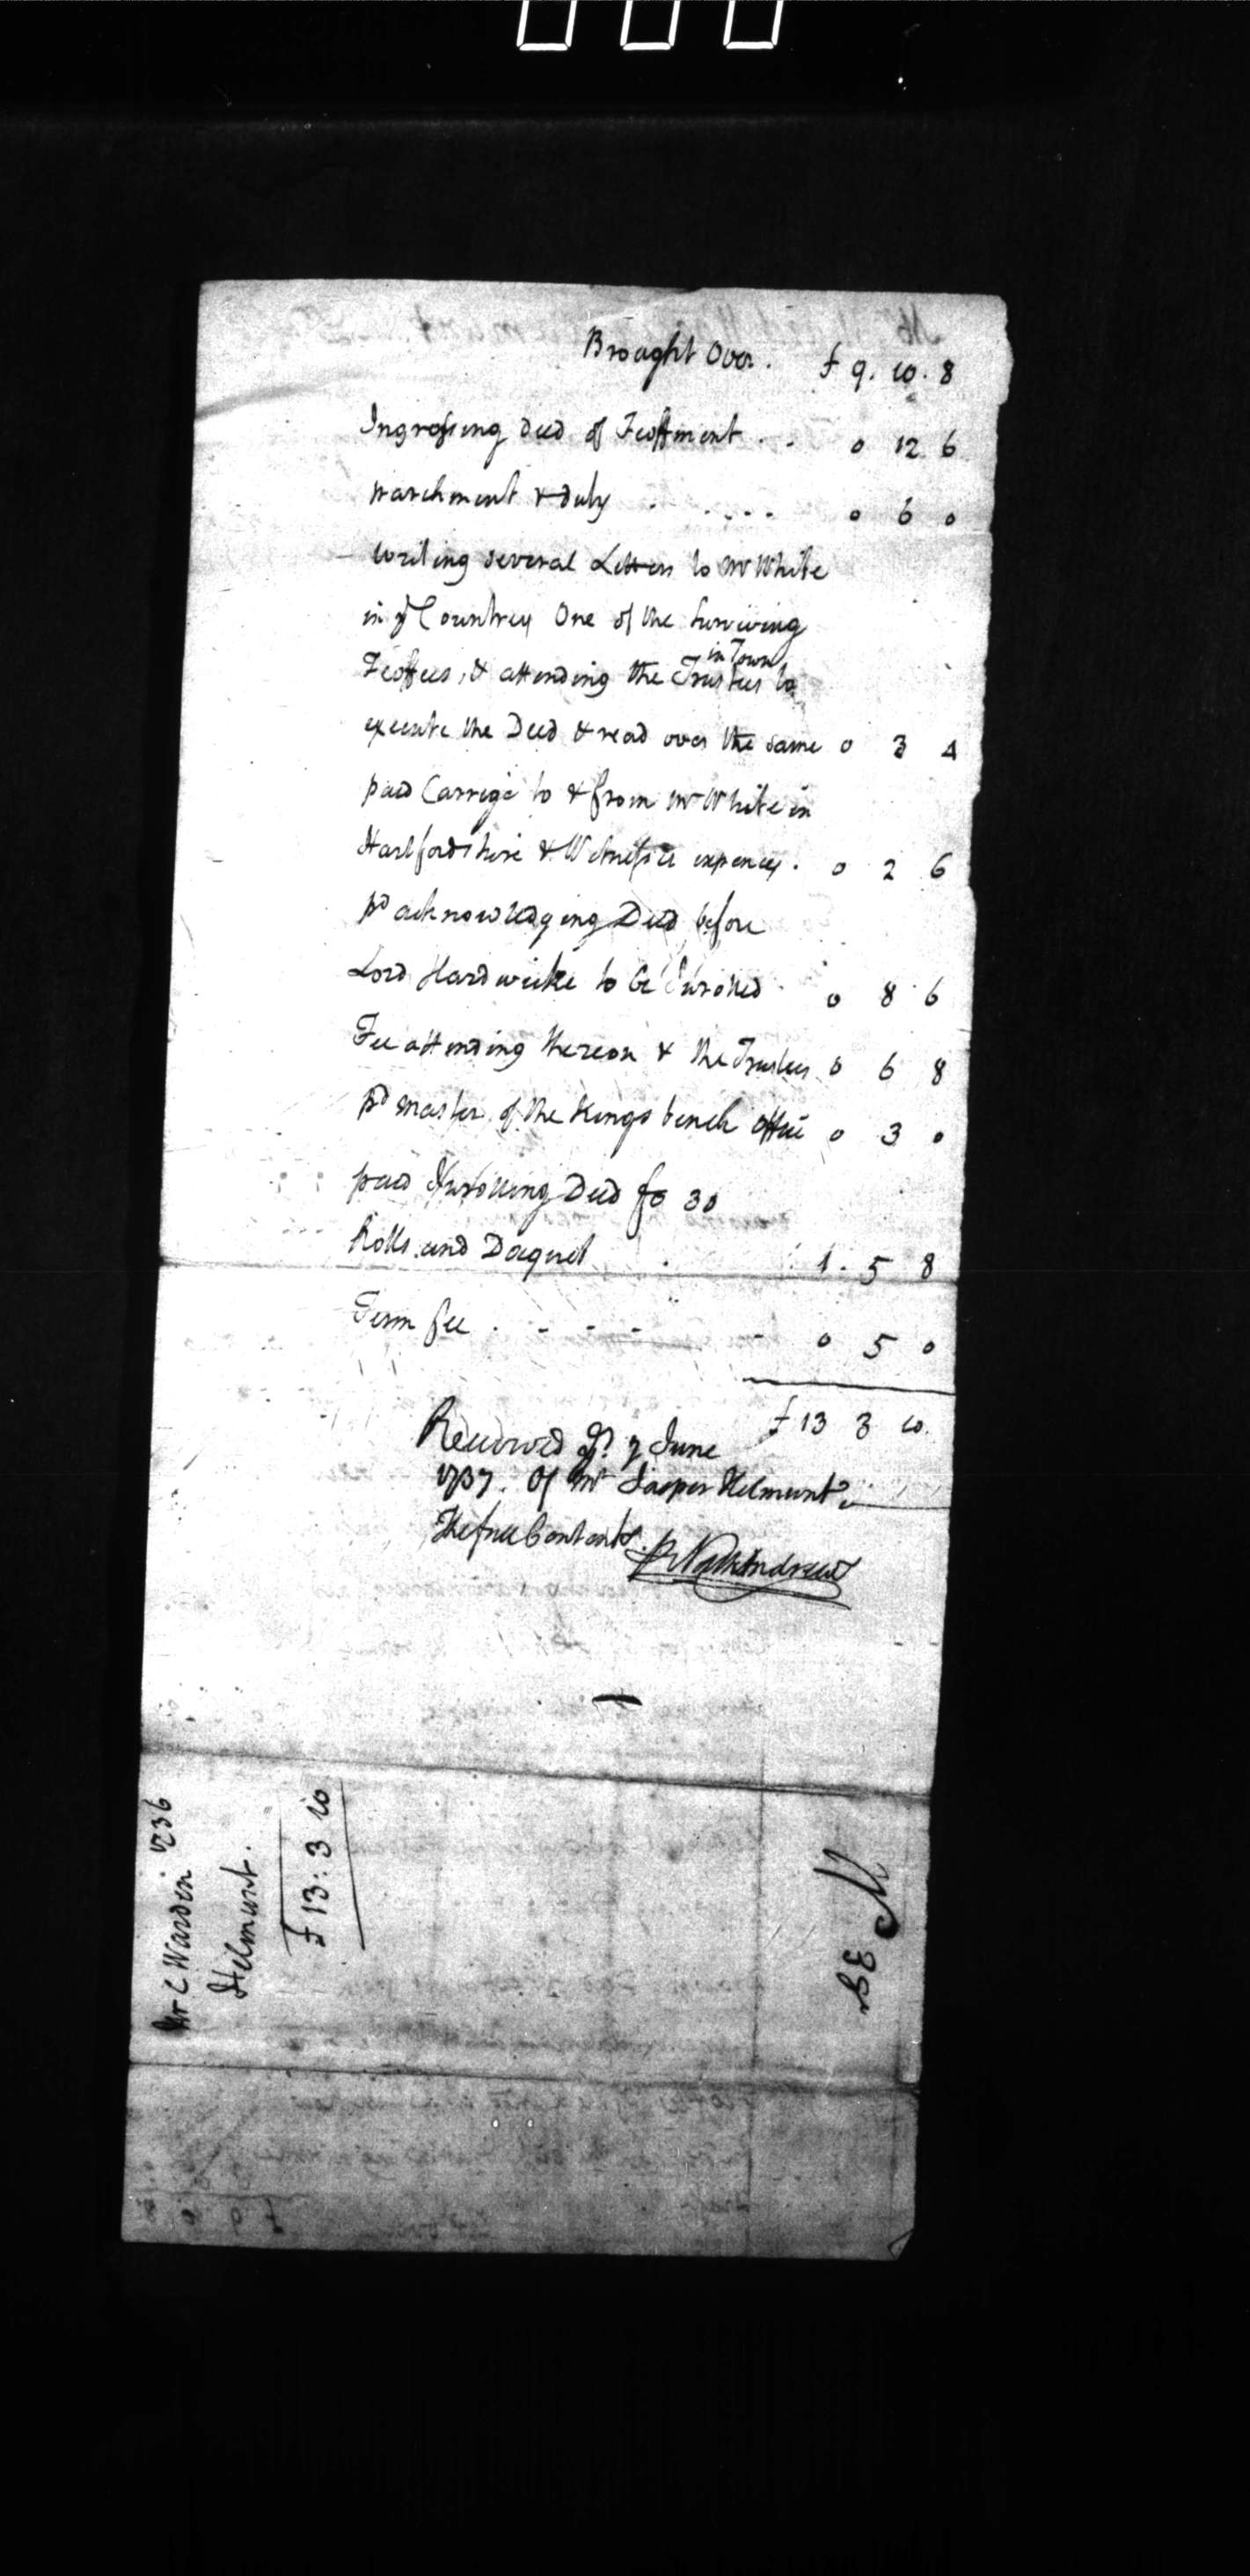 Brought Over . £ 9 . 10 . 8
Ingrossing deed of Feoffment . . 0 12 6
parchment & duty . . . . . 0 6 0
writing several Letters to Mr White
in ye Countrey One of the Surviving
in Town
Feoffees, & attending the Trustees to
execute the Deed & read over the same 0 3 4
paid Carrige to & from Mr White in
Hartfordshire & Witnesses expences . 0 2 6
pd acknowledging Deed before
Lord Hardwicke to be Inrolled . 0 8 6
Fee attending thereon & the Trustees 0 6 8
pd master of the Kings bench Office 0 3 0
paid Inrolling Deed fo 30
Rolls and Doquet . 1 . 5 8
Term fee . - - - - 0 5 0
£ 13 3 10
Received ye 7 June
1737 . Of Mr Jasper Helmunt
The full Contents
Mr C Warden 1736
Helmunt .
£ 13 : 3 10